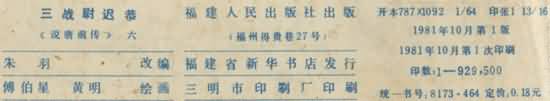 三战尉迟恭
《说唐前传》 六
朱羽 改编
傅伯星 黄明 绘画
福建人民出版社出版
(福州得贵巷27号)
福建省新华书店发行
三明市印刷厂印刷
开本787×1092 1/64 印张1 13/16
1981年10月第1版
1981年10月第1次印刷
印数:1—929,500
统一书号:8173·464 定价:0.18元